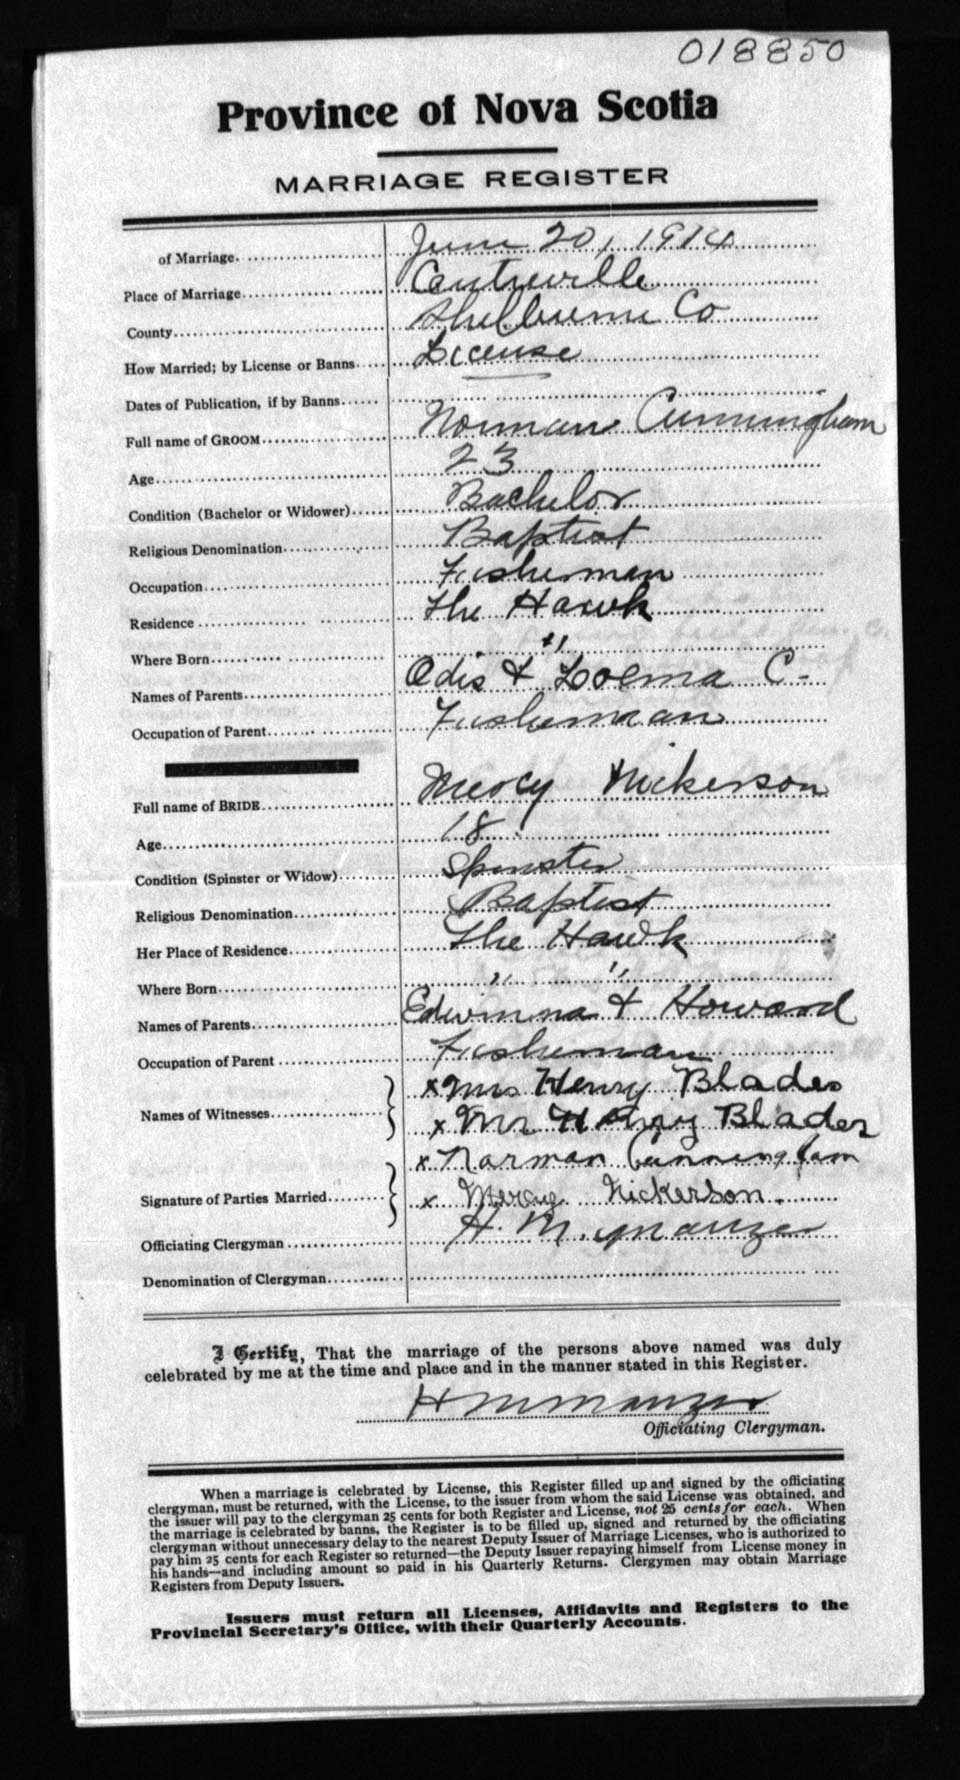 018850
Province of Nova Scotia
MARRIAGE REGISTER
of Marriage. June 20, 1914
Place of Marriage Centreville
County Shelburne Co
How Married; by License or Banns License
Dates of Publication, if by Banns
Full name of GROOM Norman Cunningham
Age 23
Condition (Bachelor or Widower) Bachelor
Religious Denomination Baptist
Occupation Fisherman
Residence The Hawk
Where Born "
Names of Parents Odis & Loema C.
Occupation of Parent Fisherman
Full name of BRIDE Mercy Nickerson
Age 18
Condition (Spinster or Widow) Spinster
Religious Denomination Baptist
Her Place of Residence The Hawk
Where Born " "
Names of Parents Edwinna & Howard
Occupation of Parent Fisherman
x Mrs Henry Blades
Names of Witnesses
x Mr Henry Blades
x Norman Cunningham
Signature of Parties Married x Mercy Nickerson.
Officiating Clergyman H. M. Manzer
Denomination of Clergyman
I Certify, That the marriage of the persons above named was duly
celebrated by me at the time and place and in the manner stated in this Register.
H M Manzer
Officiating Clergyman.
When a marriage is celebrated by License, this Register filled up and signed by the officiating
clergyman, must be returned, with the License, to the issuer from whom the said License was obtained, and
the issuer will pay to the clergyman 25 cents for both Register and License, not 25 cents for each. When
the marriage is celebrated by banns, the Register is to be filled up, signed and returned by the officiating
clergyman without unnecessary delay to the nearest Deputy Issuer of Marriage Licenses, who is authorized to
pay him 25 cents for each Register so returned—the Deputy Issuer repaying himself from License money in
his hands—and including amount so paid in his Quarterly Returns. Clergymen may obtain Marriage
Registers from Deputy Issuers.
Issuers must return all Licenses, Affidavits and Registers to the
Provincial Secretary's Office, with their Quarterly Accounts.